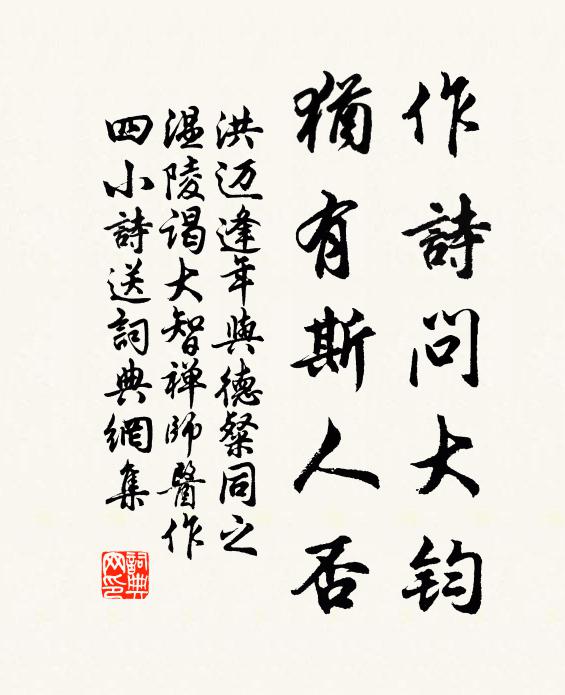 作詩問大鈞
猶有斯人否
洪迈逢年與德粲同之
温陵謁大智禅師醫作
四小詩送詞典網集
詞典
网印